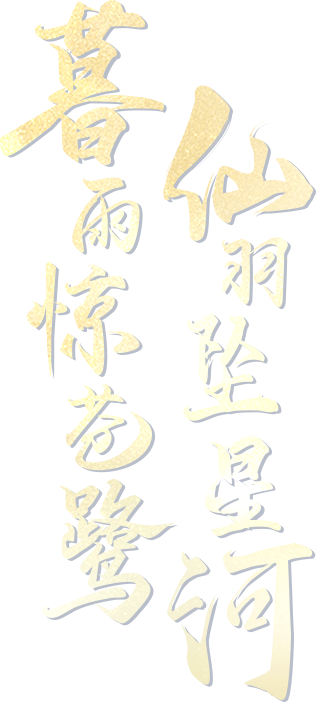 仙羽坠星河
暮雨惊苍鹭